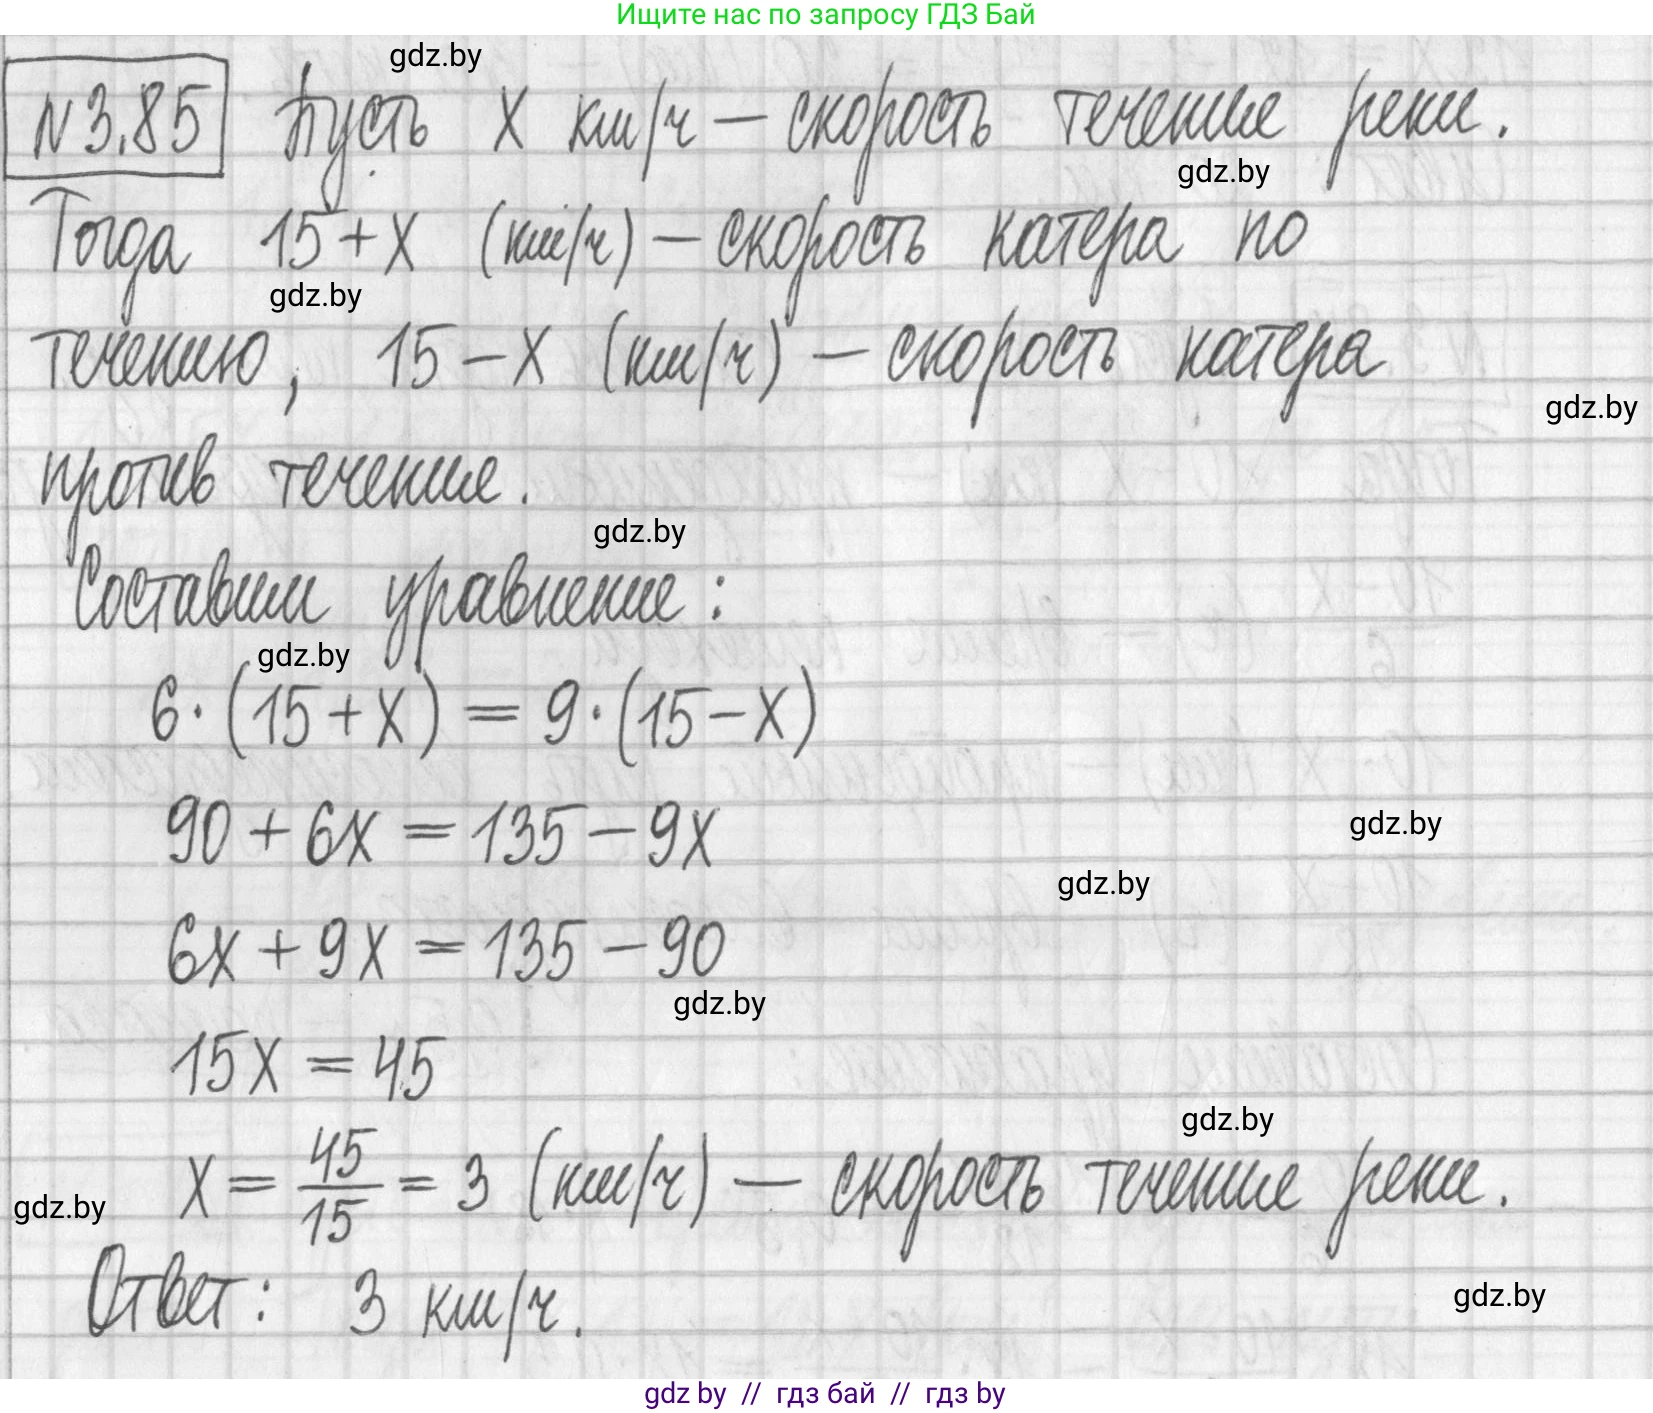 Ищите нас по запросу ГДЗ Бай
gdz.by
N3.85 Пусть x км/ч – скорость течение реки.
gdz.by
Тогда 15+x (км/ч) – скорость катера по
gdz.by
течению, 15-x (км/ч) – скорость катера
gdz.by
против течение.
gdz.by
Составим уравнение:
gdz.by
6·(15+x)=9·(15-x)
90+6x=135-9x
gdz.by
gdz.by
6x+9x=135-90
gdz.by
15x=45
gdz.by
x=45/15=3 (км/ч) – скорость течение реки.
gdz.by
Ответ: 3 км/ч.
gdz.by
gdz by // гдз бай // гдз by